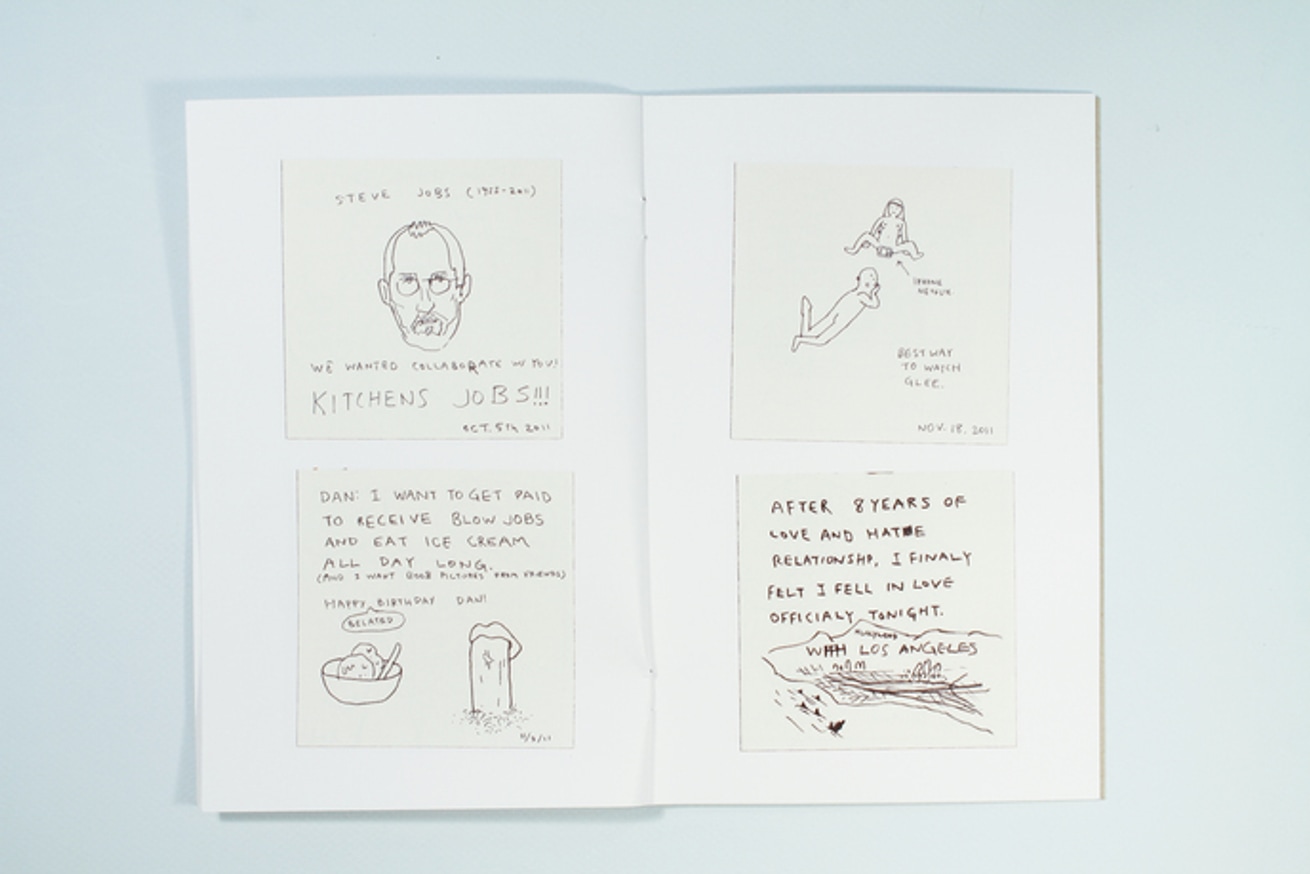 STEVE JOBS (1955-2011)
WE WANTED COLLABORATE W/ YOU!
KITCHENS JOBS!!!
OCT. 5th 2011
DAN: I WANT TO GET PAID
TO RECEIVE BLOW JOBS
AND EAT ICE CREAM
ALL DAY LONG.
(AND I WANT BOOB PICTURES FROM FRIENDS)
HAPPY BIRTHDAY DAN!
BELATED
IPHONE
BEST WAY
TO WATCH
GLEE.
NOV. 18. 2011
AFTER 8 YEARS OF
LOVE AND HATE
RELATIONSHP, I FINALY
FELT I FELL IN LOVE
OFFICIALY TONIGHT.
WITH LOS ANGELES